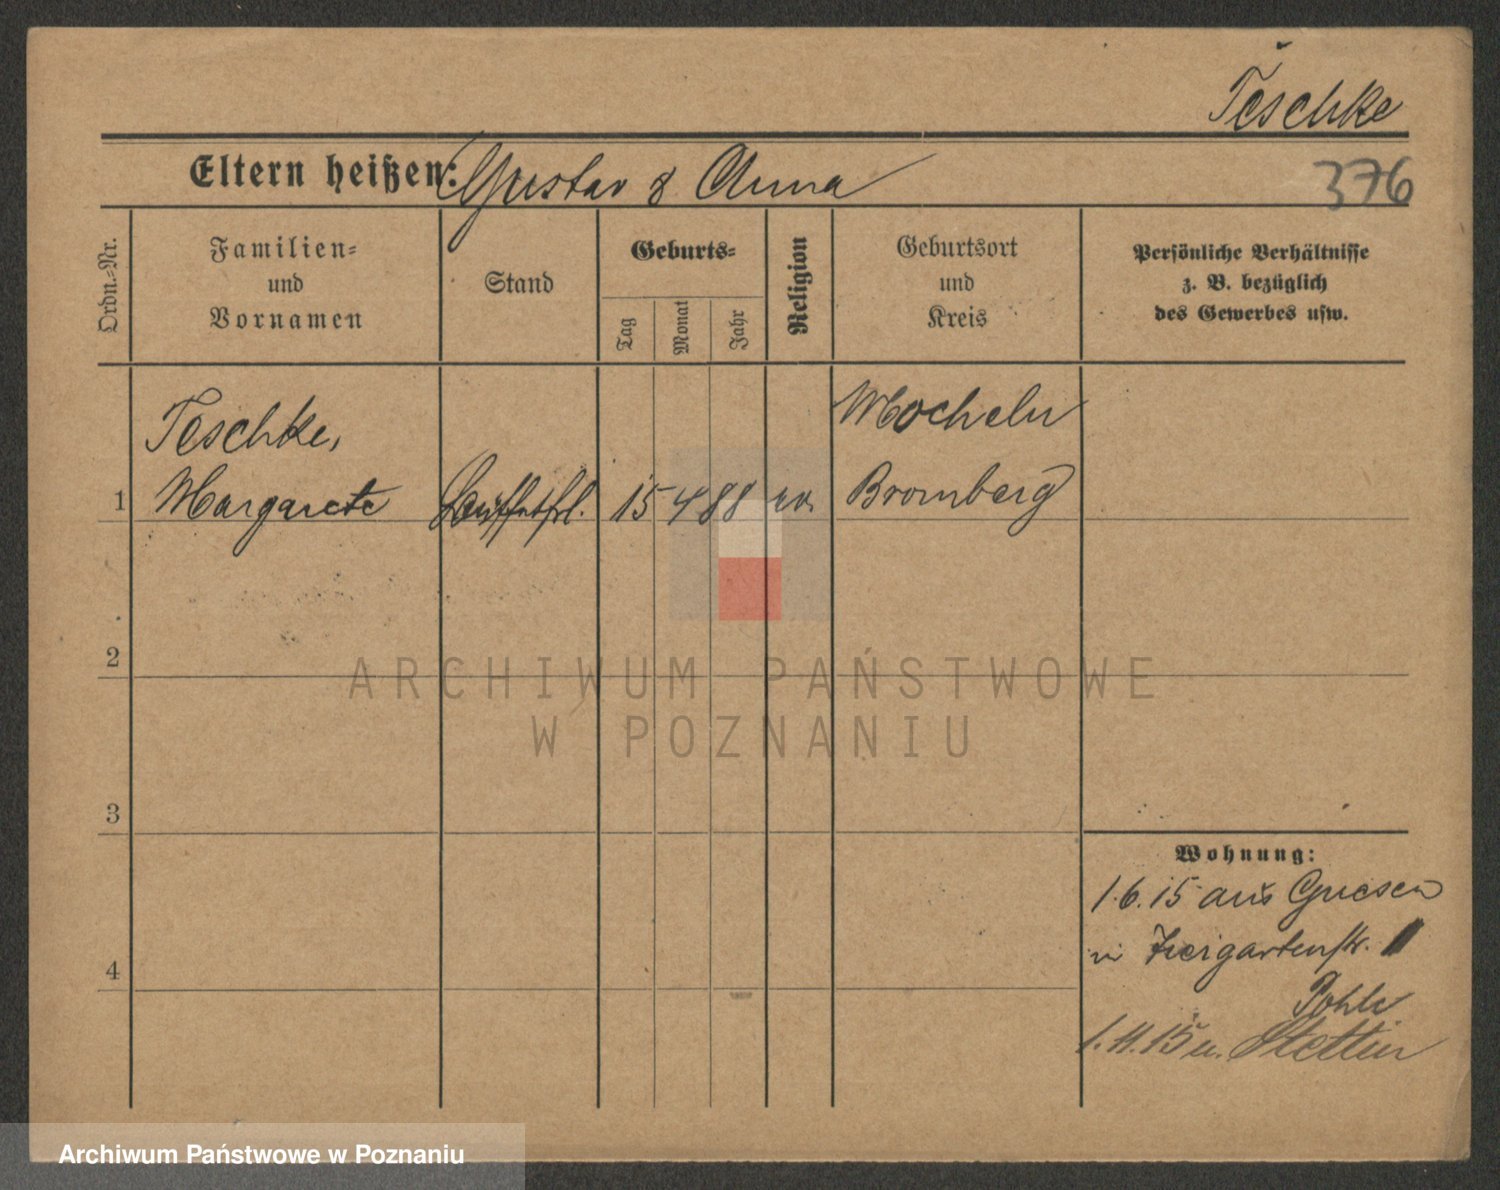 Teschke
Eltern heißen: Gustav & Anna
376
Ordn.-Nr.
Familien-
und
Vornamen
Stand
Geburts-
Tag
Monat
Jahr
Religion
Geburtsort
und
Kreis
Persönliche Verhältnisse
z. B. bezüglich
des Gewerbes usw.
Teschke,
Mocheln
1 Margarete Büffetfrl. 15 4 88 ev. Bromberg
2
3
4
Wohnung:
1.6.15 aus Gnesen
n Tiergartenstr. 1
Pohle
1.11.15 n. Stettin
ARCHIWUM PAŃSTWOWE
W POZNANIU
Archiwum Państwowe w Poznaniu